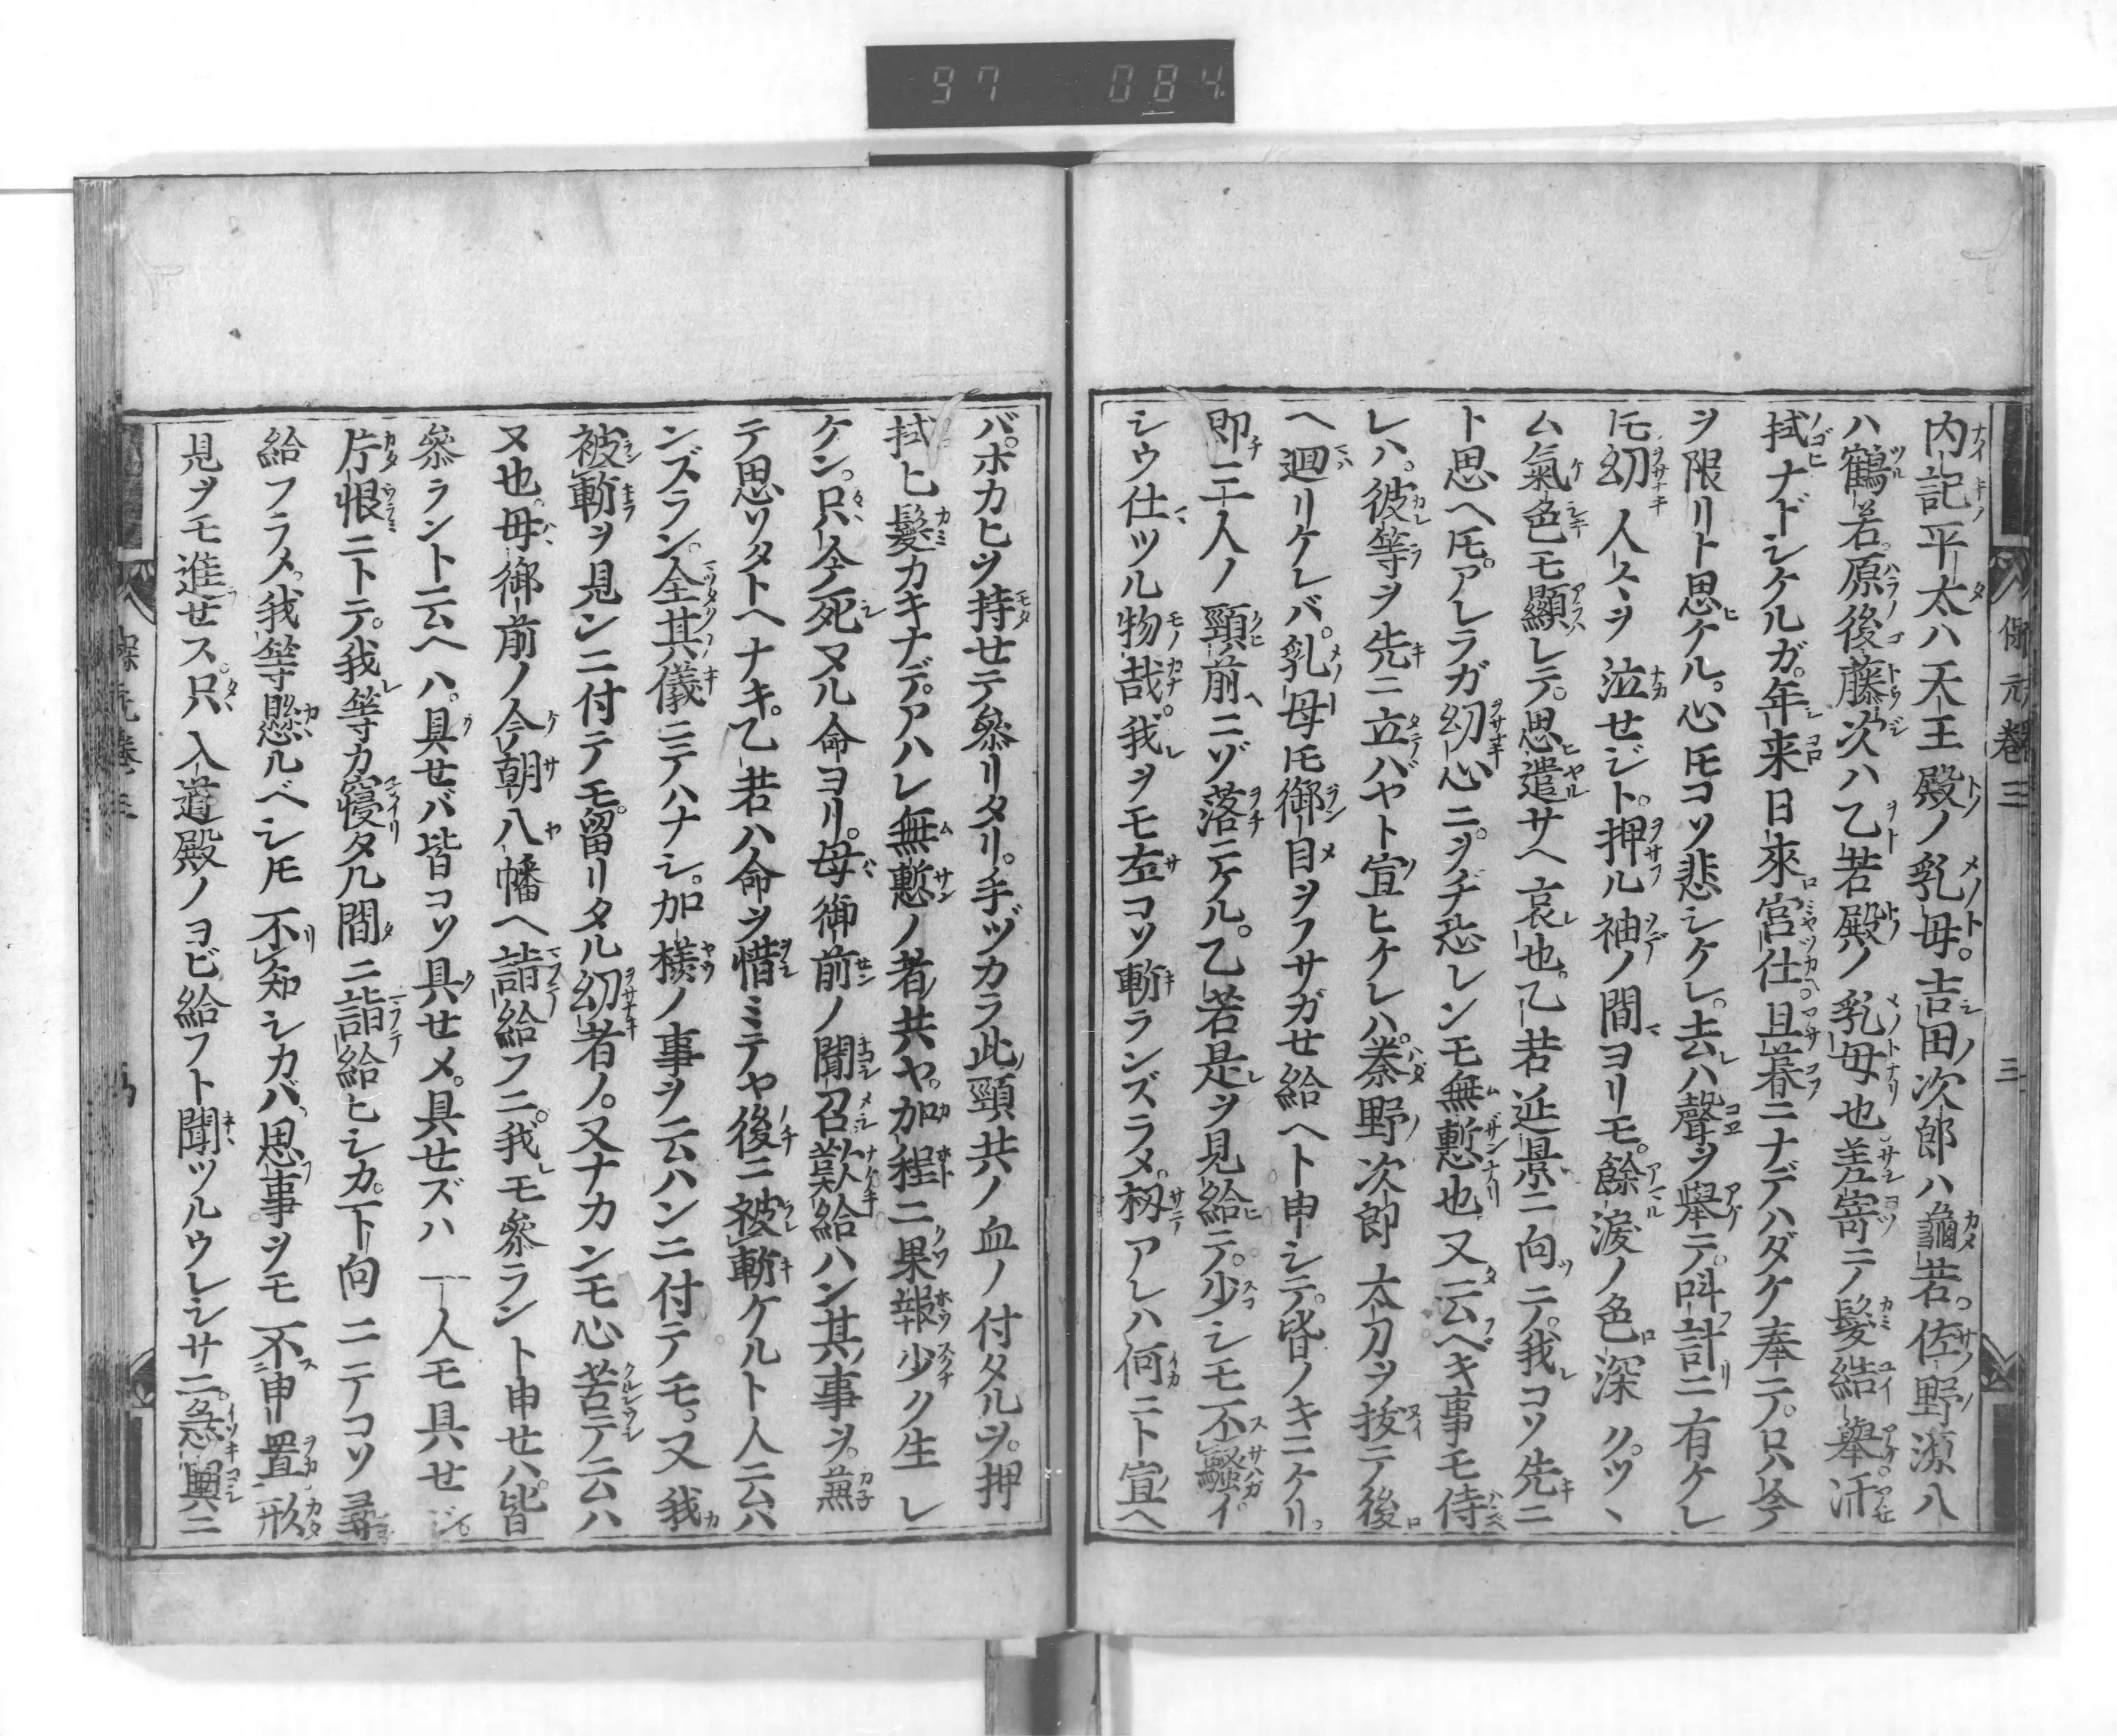 97 084
保元巻三 三
内記平太ハ天王殿ノ乳母。吉田次郎ハ龜若。佐野源八
ハ鶴若。原後藤次ハ乙若殿ノ乳母也。差寄テノ髮結擧汗
拭ナドシケルガ。年来日來宮仕。旦暮ニナデハダケ奉テ。只今
ヲ限リト思ケル。心圧コソ悲シケレ。去ハ聲ヲ擧テ。叫計ニ有ケレ
圧幼人々ヲ泣セジト。押ル袖ノ間ヨリモ。餘淚ノ色深クツヽ
ム氣色モ顯レテ。思遣サヘ哀也。乙若延景ニ向テ。我コソ先ニ
ト思ヘ圧。アレラガ幼心ニ。ヲヂ恐レンモ無慙也。又云ベキ事モ侍
レハ。彼等ヲ先ニ立バヤト宣ヒケレハ。秦野次郎太刀ヲ拔テ後
ヘ廻リケレバ。乳母圧御目ヲフサガせ給ヘト申シテ。皆ノキニケリ。
即三人ノ頸前ニゾ落ニケル。乙若是ヲ見給テ。少シモ不騷イ
シウ仕ツル物哉。我ヲモ左コソ斬ランズラメ。扨アレハ何ニト宣ヘ
バホカヒヲ持せテ參リタリ。手ヅカラ此頸共ノ血ノ付タルヲ。押
拭ヒ髮カキナデ。アハレ無慙ノ者共ヤ。加程ニ果報少ク生レ
ケン。只今死ヌル命ヨリ。母御前ノ聞召歎給ハン其事ヲ。兼
テ思ソタトヘナキ。乙若ハ命ヲ惜ミテヤ後ニ被斬ケルト人云ハ
ンズラン。全其儀ニテハナシ。加樣ノ事ヲ云ハンニ付テモ。又我カ
被斬ヲ見ンニ付テモ。留リタル幼者ノ。又ナカンモ心苦テ云ハ
ヌ也。母御前ノ今朝八幡ヘ詣給フニ。我モ參ラント申せハ。皆
參ラント云ヘハ。具せバ皆コソ具せメ。具せズハ一人モ具せジ。
片恨ニトテ。我等カ寢タル間ニ詣給ヒシカ。下向ニテコソ尋
給フラメ。我等懸ルベシ圧不知シカバ。思事ヲモ不申置形
見ヲモ進せス。只入道殿ノヨビ給フト聞ツルウレシサニ。急輿ニ